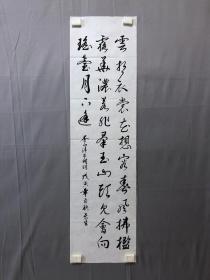 雲想衣裳花想容春風拂檻
露華濃若非羣玉山頭見會向
瑤臺月下逢 李白清平調詞 戊戌年